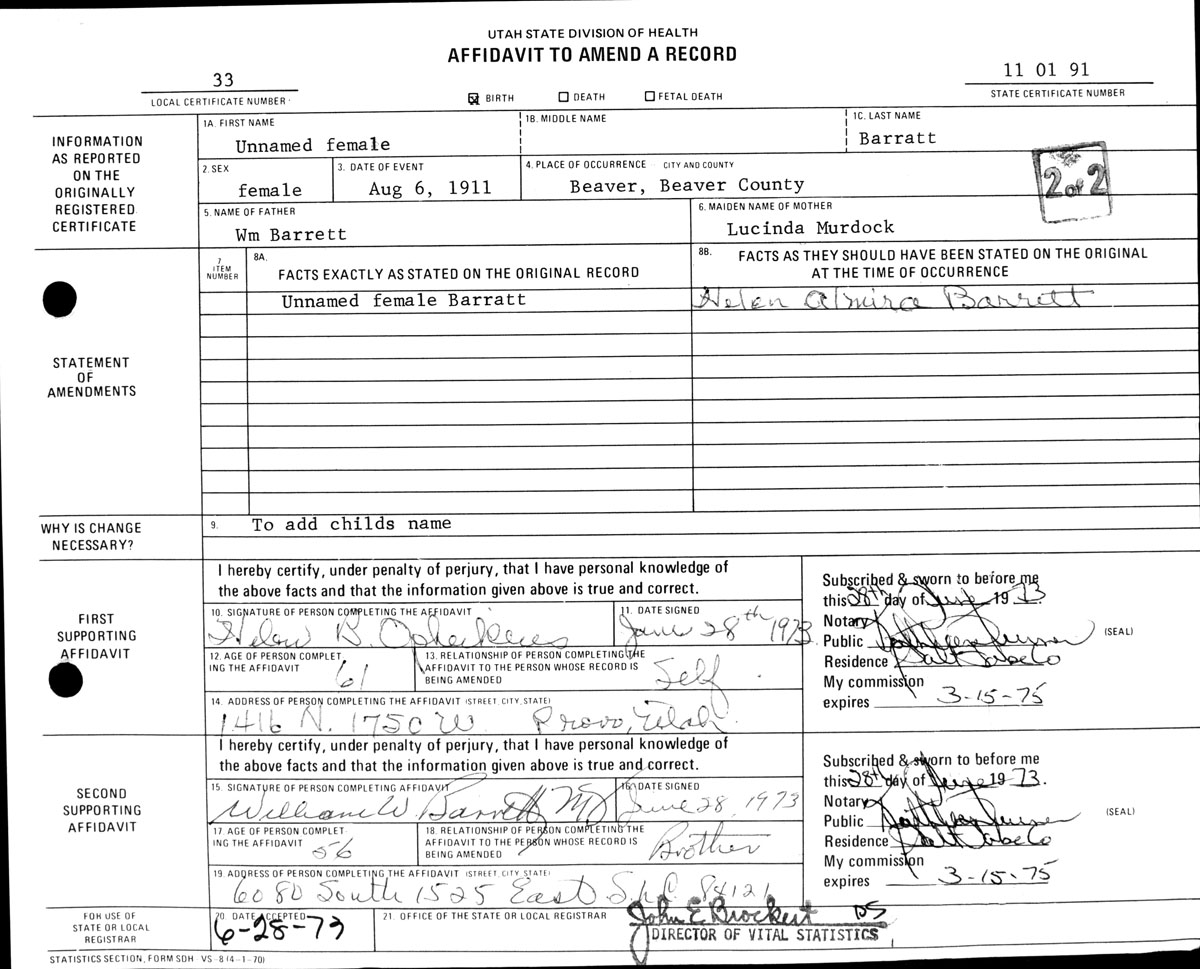 UTAH STATE DIVISION OF HEALTH
AFFIDAVIT TO AMEND A RECORD
33
LOCAL CERTIFICATE NUMBER
BIRTH DEATH FETAL DEATH
11 01 91
STATE CERTIFICATE NUMBER
INFORMATION
AS REPORTED
ON THE
ORIGINALLY
REGISTERED
CERTIFICATE
1A. FIRST NAME
Unnamed female
1B. MIDDLE NAME
1C. LAST NAME
Barratt
2. SEX
female
3. DATE OF EVENT
Aug 6, 1911
4. PLACE OF OCCURRENCE - CITY AND COUNTY
Beaver, Beaver County
2 of 2
5. NAME OF FATHER
Wm Barrett
6. MAIDEN NAME OF MOTHER
Lucinda Murdock
STATEMENT
OF
AMENDMENTS
7
ITEM
NUMBER
8A.
FACTS EXACTLY AS STATED ON THE ORIGINAL RECORD
8B. FACTS AS THEY SHOULD HAVE BEEN STATED ON THE ORIGINAL
AT THE TIME OF OCCURRENCE
Unnamed female Barratt
Helen Almira Barrett
WHY IS CHANGE
NECESSARY?
9. To add childs name
FIRST
SUPPORTING
AFFIDAVIT
I hereby certify, under penalty of perjury, that I have personal knowledge of
the above facts and that the information given above is true and correct.
10. SIGNATURE OF PERSON COMPLETING THE AFFIDAVIT
Helen B.
11. DATE SIGNED
June 28th 1973
12. AGE OF PERSON COMPLET-
ING THE AFFIDAVIT
61
13. RELATIONSHIP OF PERSON COMPLETING THE
AFFIDAVIT TO THE PERSON WHOSE RECORD IS
BEING AMENDED
Self
14. ADDRESS OF PERSON COMPLETING THE AFFIDAVIT (STREET, CITY, STATE)
1416 N. 1750 W. Provo, Utah
Subscribed & sworn to before me
this 28th day of June 1973.
Notary
Public
(SEAL)
Residence Salt Lake Co
My commission
expires 3-15-75
SECOND
SUPPORTING
AFFIDAVIT
I hereby certify, under penalty of perjury, that I have personal knowledge of
the above facts and that the information given above is true and correct.
15. SIGNATURE OF PERSON COMPLETING AFFIDAVIT
William W. Barrett MD
16. DATE SIGNED
June 28, 1973
17. AGE OF PERSON COMPLET-
ING THE AFFIDAVIT
56
18. RELATIONSHIP OF PERSON COMPLETING THE
AFFIDAVIT TO THE PERSON WHOSE RECORD IS
BEING AMENDED
Brother
19. ADDRESS OF PERSON COMPLETING THE AFFIDAVIT (STREET, CITY, STATE)
6080 South 1525 East S.L.C. 84121
Subscribed & sworn to before me
this 28th day of June 1973.
Notary
Public
(SEAL)
Residence Salt Lake Co
My commission
expires 3-15-75
FOR USE OF
STATE OR LOCAL
REGISTRAR
20. DATE ACCEPTED
6-28-73
21. OFFICE OF THE STATE OR LOCAL REGISTRAR
John E Brockert DS
DIRECTOR OF VITAL STATISTICS
STATISTICS SECTION, FORM SDH VS-8 (4-1-70)